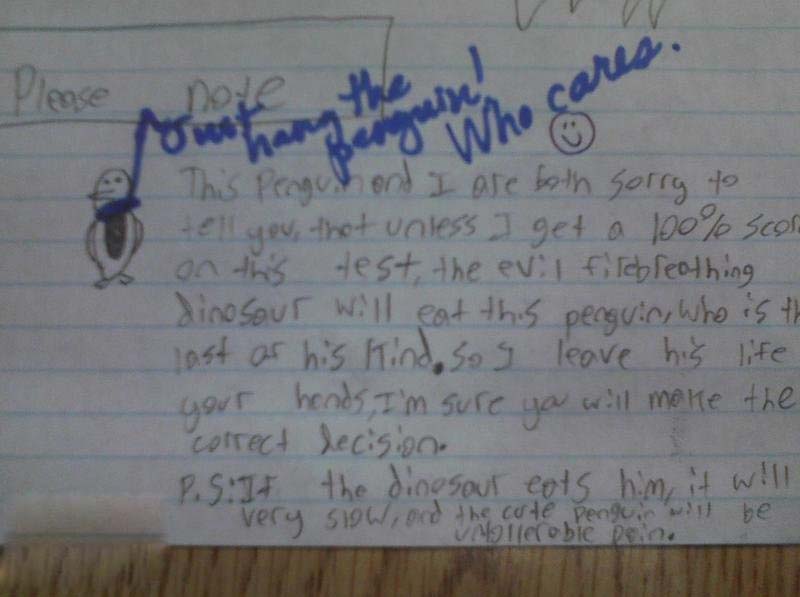 Please note
Just hang the penguin! Who cares.
This Penguin and I are both sorry to
tell you, that unless I get a 100% scor
on this test, the evil firebreathing
dinosaur will eat this penguin, who is th
last of his kind. So I leave his life
your hands, I'm sure you will make the
correct decision.
P.S: If the dinosaur eats him, it will
very slow, and the cute penguin will be
pain.